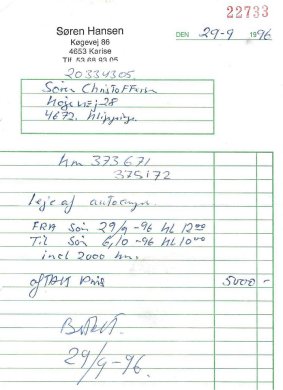 22733
Søren Hansen
Køgevej 86
4653 Karise
Tlf. 53 68 93 05
DEN 29-9 1996
20334305
Søren Christoffersen
Højevej 28
4672 Klippinge
km 373671
375172
Leje af autocamper
FRA Søn 29/9 -96 kl 12 00
Til Søn 6/10 -96 kl 10 00
incl 2000 km.
aftalt Pris 5000 -
Betalt.
29/9-96.